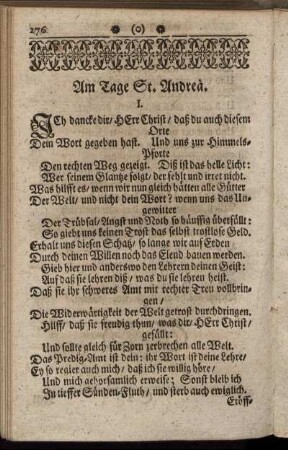 276. (o)
Am Tage St. Andreä.
I.
ICh dancke dir/ HErr Christ/ daß du auch diesem
Orte
Dem Wort gegeben hast. Und uns zur Himmels-
Pforte
Den rechten Weg gezeigt. Diß ist das helle Licht:
Wer seinem Glantze folgt/ der fehlt und irret nicht.
Was hilfft es/ wenn wir nun gleich hätten alle Gütter
Der Welt/ und nicht dein Wort? wenn uns das Un-
gewitter
Der Trübsal/ Angst und Noth so häuffig überfällt:
So giebt uns keinen Trost das selbst trostlose Geld.
Erhalt uns diesen Schatz/ so lange wir auf Erden
Durch deinen Willen noch das Elend bauen werden.
Gieb hier und anderswo den Lehrern deinen Geist:
Auf daß sie lehren diß/ was du sie lehren heist.
Daß sie ihr schweres Amt mit rechter Treu vollbrin-
gen/
Die Widerwärtigkeit der Welt getrost durchdringen.
Hilff/ daß sie freudig thun/ was dir/ HErr Christ/
gefällt:
Und sollte gleich für Zorn zerbrechen alle Welt.
Das Predig-Amt ist dein: ihr Wort ist deine Lehre/
Ey so regier auch mich/ daß ich sie willig höre/
Und mich gehorsamlich erweise; Sonst bleib ich
In tieffer Sünden-Fluth/ und sterb auch ewiglich.
Eröff-